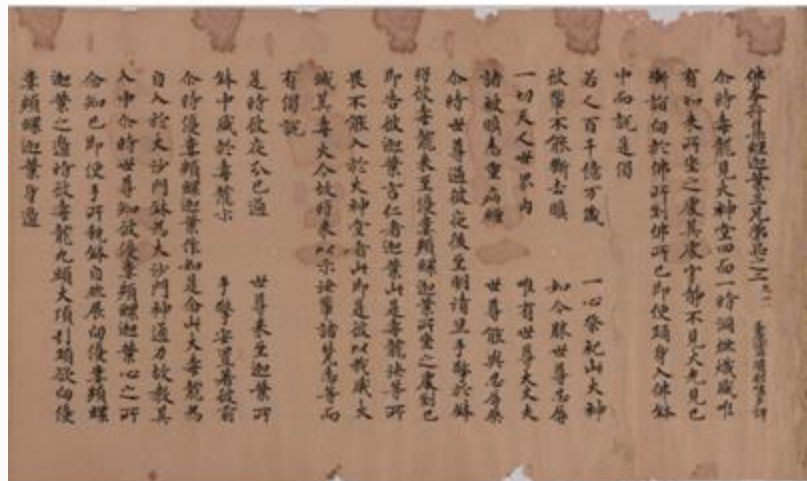 佛本行集經迦葉三兄弟品之三
尒時毒龍見火神堂四面一時洞然熾盛唯
有如來所坐之處其處寂靜不見火光見已
漸詣向於佛所到佛所已即便踊身入佛鉢
中而說是偈
若人百千億万歲 一心祭祀此火神
彼輩不能斷去瞋 如今勝世尊忍辱
一切天人世界內 唯有世尊大丈夫
諸被瞋恚重病纏 世尊能與忍辱藥
尒時世尊過彼夜後至明清旦手擎於鉢
將彼毒龍來至優婁頻螺迦葉所坐之處到已
即告彼迦葉言仁者迦葉此是毒龍汝等所
畏不能入於火神堂者此即是彼以我威火
滅其毒火今故將來以示汝輩諸梵志等而
有偈說
是時彼夜分已過 世尊來至迦葉所
鉢中盛於毒龍 手擎安置著彼前
尒時優婁頻螺迦葉作如是念此大毒龍
自入於大沙門鉢為大沙門神通力故教其
入中尒時世尊知彼優婁頻螺迦葉心之所
念知已即便手所執鉢自然展向優婁頻螺
迦葉之邊時彼毒龍九頭大項引頭欲向優
婁頻螺迦葉身邊